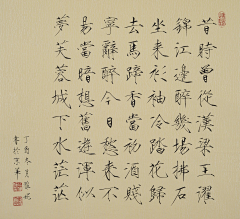 昔時曾從漢梁王濯
錦江邊醉幾場拂石
坐來衫袖冷踏花歸
去馬蹄香當初酒賤
寧辭醉今日愁來不
易當暗想舊遊渾似
夢芙蓉城下水茫茫
丁酉冬月
書於京華